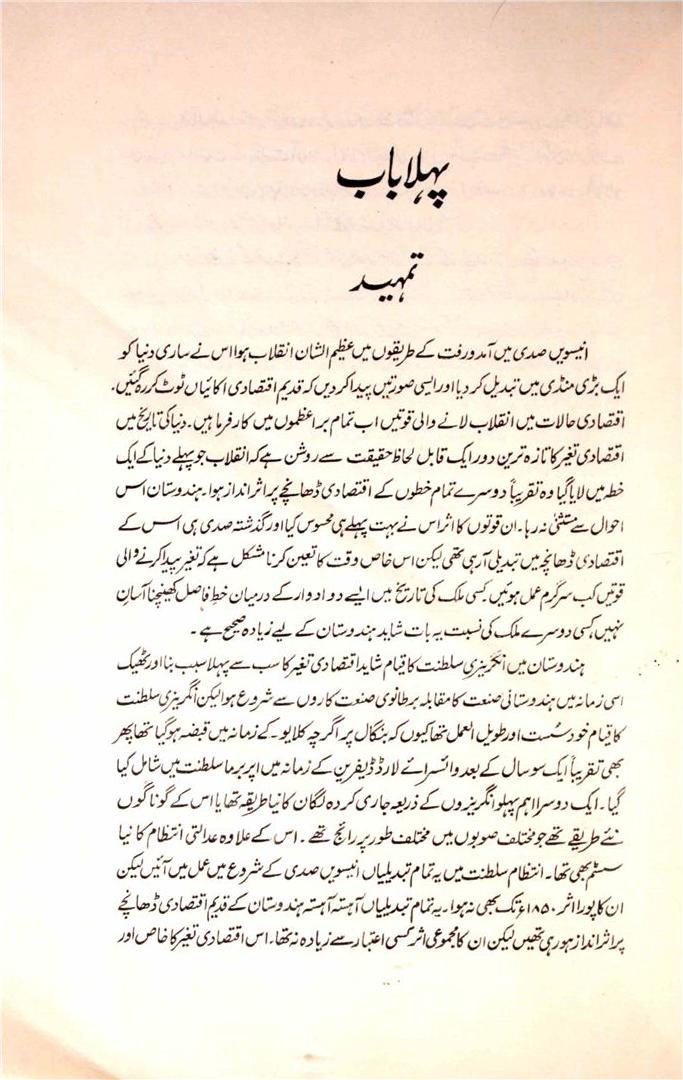 پہلا باب
تمہید
انیسویں صدی میں آمدورفت کے طریقوں میں عظیم الشان انقلاب ہوا اس نے ساری دنیا کو
ایک بڑی منڈی میں تبدیل کر دیا اور ایسی صورتیں پیدا کر دیں کہ قدیم اقتصادی اکائیاں ٹوٹ کر رہ گئیں.
اقتصادی حالات میں انقلاب لانے والی قوتیں اب تمام براعظموں میں کارفرما ہیں۔ دنیا کی تاریخ میں
اقتصادی تغیر کا تازہ ترین دور ایک قابل لحاظ حقیقت سے روشن ہے کہ انقلاب جو پہلے دنیا کے ایک
خطہ میں لایا گیا وہ تقریباً دوسرے تمام خطوں کے اقتصادی ڈھانچے پر اثرانداز ہوا۔ ہندوستان اس
احوال سے مستثنیٰ نہ رہا۔ ان قوتوں کا اثر اس نے بہت پہلے ہی محسوس کیا اور گذشتہ صدی ہی اس کے
اقتصادی ڈھانچہ میں تبدیلی آرہی تھی لیکن اس خاص وقت کا تعین کرنا مشکل ہے کہ تغیر پیدا کرنے والی
قوتیں کب سرگرم عمل ہوئیں. کسی ملک کی تاریخ میں ایسے دو ادوار کے درمیان خط فاصل کھینچنا آسان
نہیں، کسی دوسرے ملک کی نسبت یہ بات شاید ہندوستان کے لیے زیادہ صحیح ہے۔
ہندوستان میں انگریزی سلطنت کا قیام شاید اقتصادی تغیر کا سب سے پہلا سبب بنا اور ٹھیک
اسی زمانہ میں ہندوستانی صنعت کا مقابلہ برطانوی صنعت کاروں سے شروع ہوا لیکن انگریزی سلطنت
کا قیام خود سست اور طویل العمل تھا کیوں کہ بنگال پر اگرچہ کلایو۔ کے زمانہ میں قبضہ ہوگیا تھا پھر
بھی تقریباً ایک سو سال کے بعد وائسرائے لارڈ ڈیفرین کے زمانہ میں اپر برما سلطنت میں شامل کیا
گیا۔ ایک دوسرا اہم پہلو انگریزوں کے ذریعہ جاری کردہ لگان کا نیا طریقہ تھا یا اس کے گوناگوں
نئے طریقے تھے جو مختلف صوبوں میں مختلف طور پر رائج تھے۔ اس کے علاوہ عدالتی انتظام کا نیا
سسٹم بھی تھا۔ انتظام سلطنت میں یہ تمام تبدیلیاں انیسویں صدی کے شروع میں عمل میں آئیں لیکن
ان کا پورا اثر ۱۸۵۰ء تک بھی نہ ہوا۔ یہ تمام تبدیلیاں آہستہ آہستہ ہندوستان کے قدیم اقتصادی ڈھانچے
پر اثرانداز ہو رہی تھیں لیکن ان کا مجموعی اثر کسی اعتبار سے زیادہ نہ تھا۔ اس اقتصادی تغیر کا خاص اور